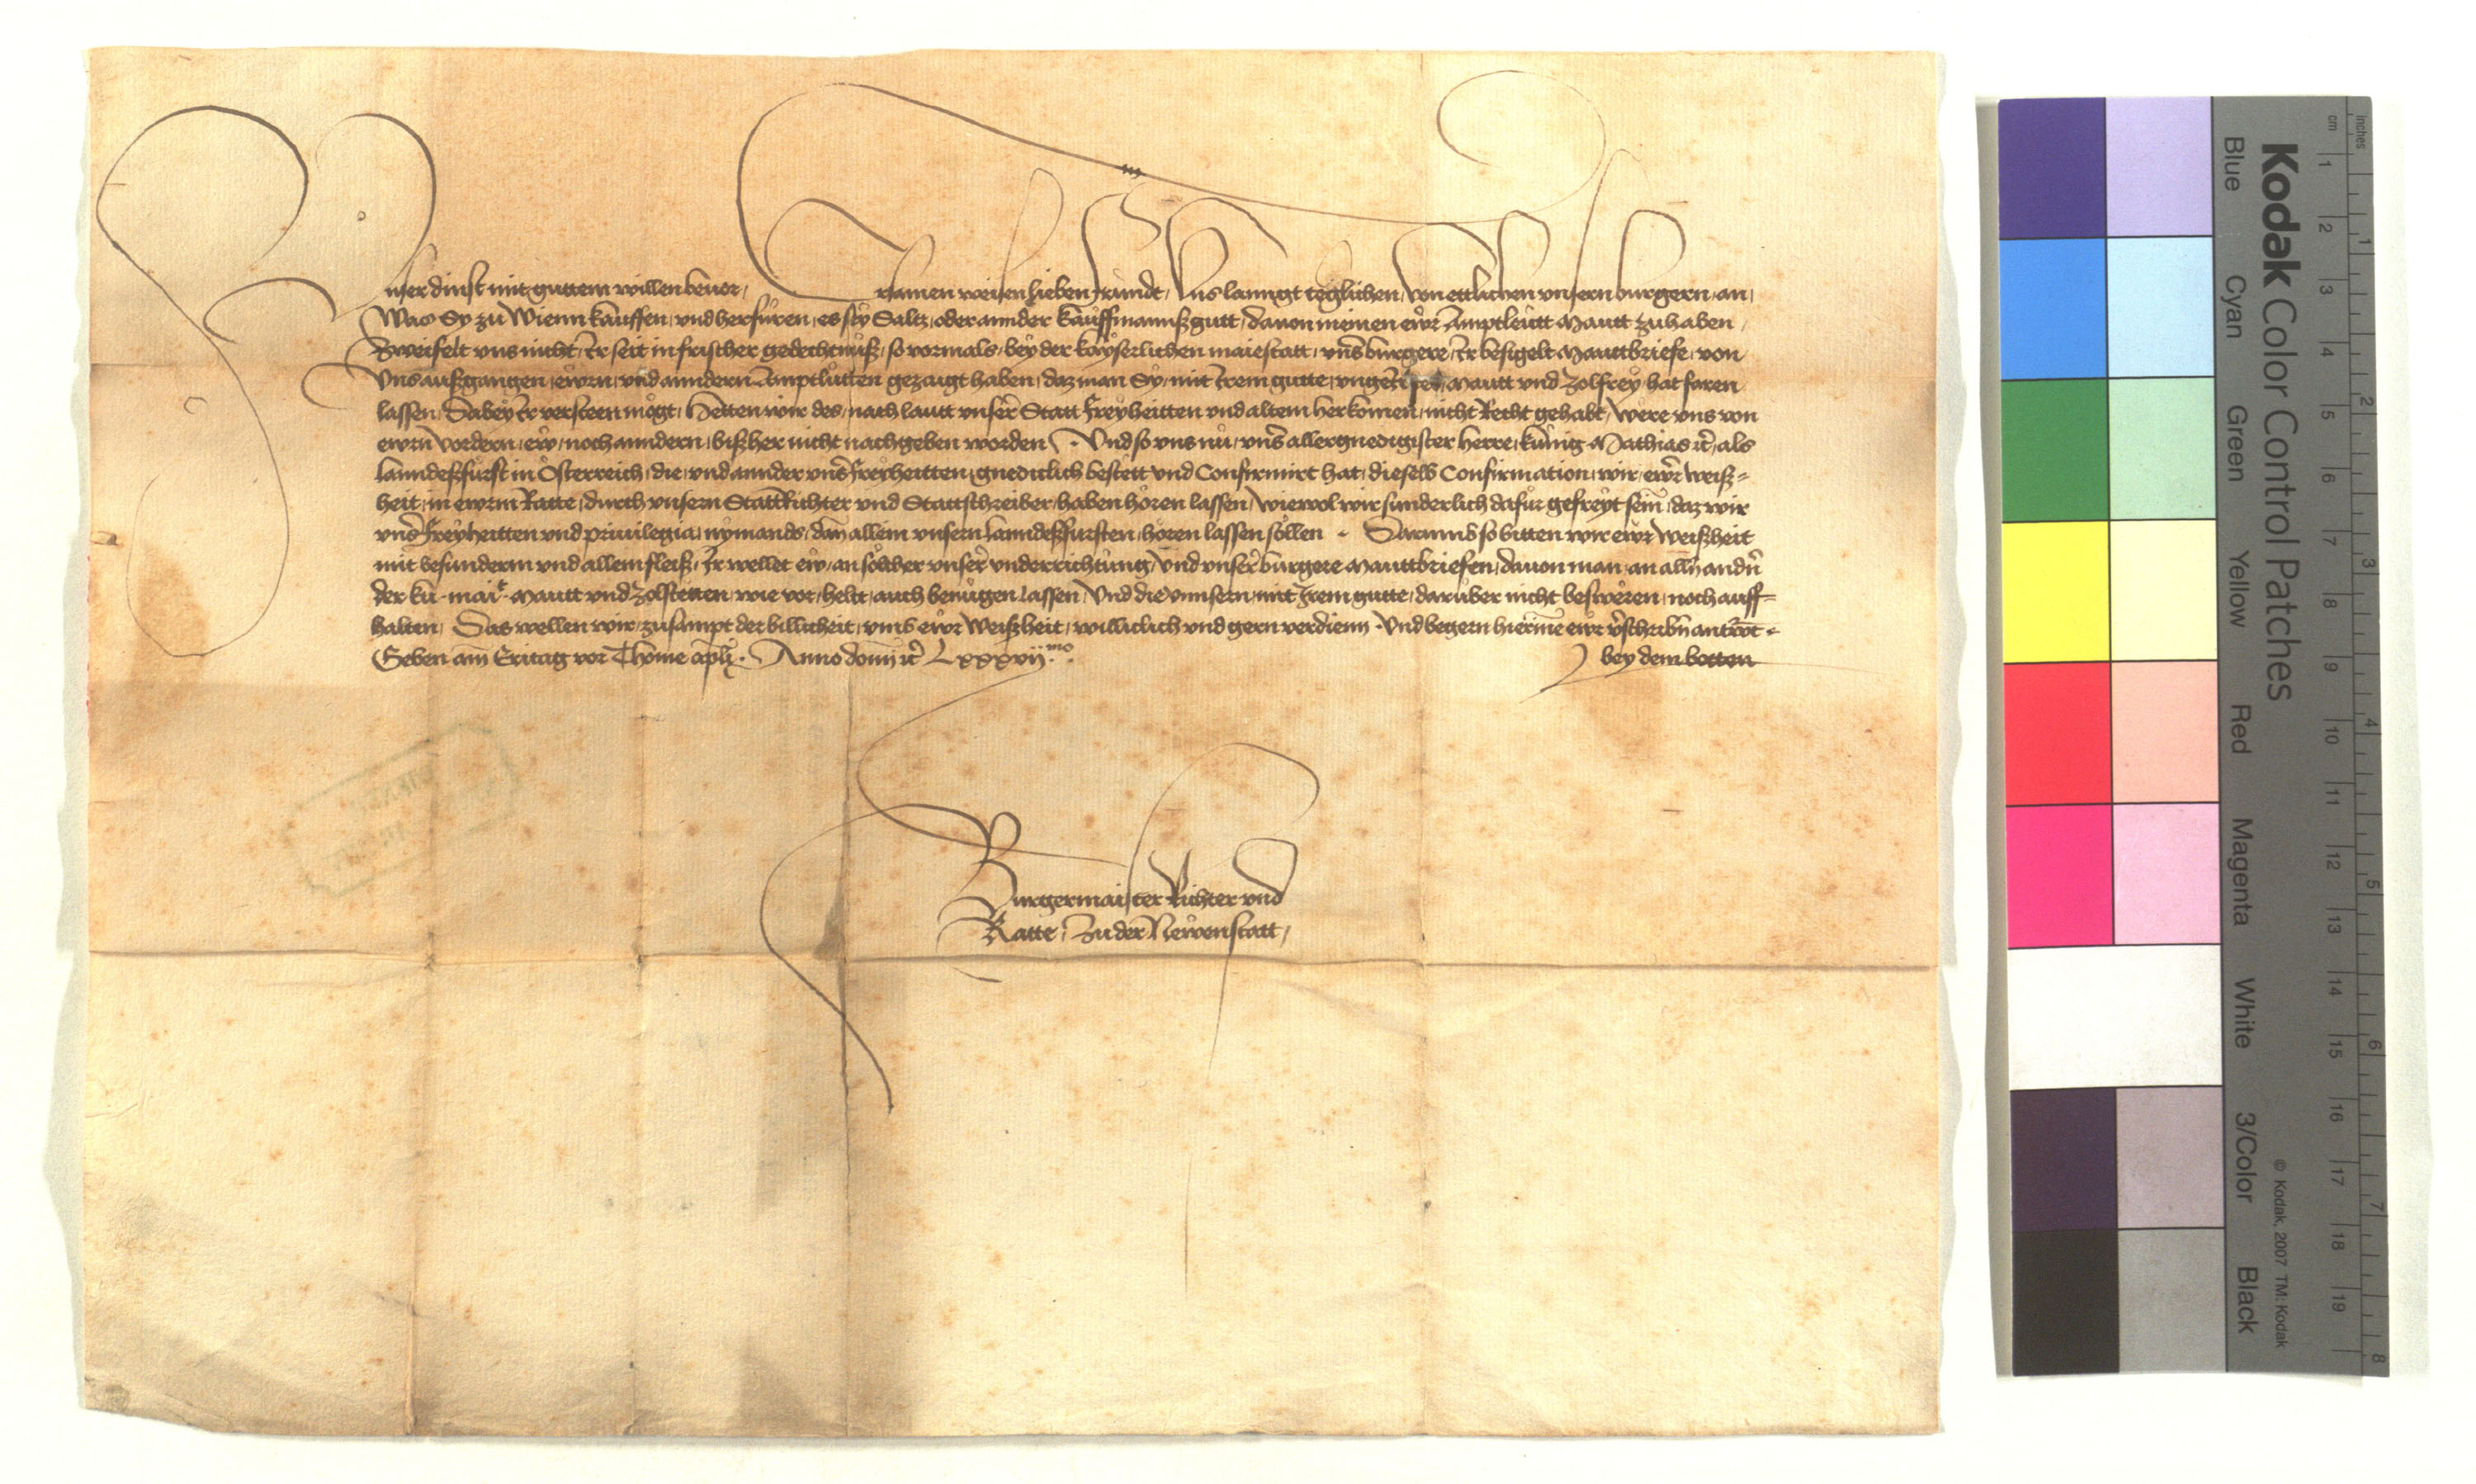 Unser dinst mit guttem willen beuor, Ersamen weisen lieben freundt, Uns lanngt teglichen, von ettlichen vnsern burgern, an,
Was Sy zu Wienn kauffen, vnd herfüren, es sey Saltz, oder annder kauffmannßgutt, dauon meinen ewr Amptleütt Mautt zuhaben,
Zweifelt vns nicht, Ir seit in frischer gedechtnüß, so vormals, bey der kayserlichen maiestatt, vnser burgere, Ir besigelt Mauttbriefe, von
Vns außgangen, ewrn, vnd anndern Amptlütten gezaigt haben, daz man Sy, mit Irem gutte, Mautt vnd Zolfrey, hat faren
lassen, Dabey Ir versteen mögt, Hetten wir des, nach lautt vnser Statt Freyheitten vnd altem herkomen, nicht Recht gehabt, were vns von
ewrn Vordern, ew, noch anndern, bißher nicht nachgeben worden. Vnd so vns nu, vnser allergnedigister herre, künig Mathias etc, als
lanndeßfürst in Österreich, die, vnd annder vnser Freyheitten, gnediclich bestett vnd Confirmirt hat, dieselb Confirmation, wir, ewr Weiß-
heit, in ewrm Ratte, durch vnsern StattRichter vnd Stattschreiber, haben hören lassen, Wiewol wir sunderlich dafür gefreyt sein, daz wir
vnser Freyheitten vnd priuilegia, nymands, dan allein vnsern Lanndeßfürsten, hören lassen söllen. Darumb so bitten wir ewr Weißheit
mit besunderm vnd allem fleiß, Ir wellet ew, an sölcher vnser vnderrichtung, Vnd vnser burgere Mauttbriefen, dauon man, an alln andn
der ku. mait. Mautt vnd Zolstetten, wie vor, helt, auch benügen lassen, Vnd die vnnsern, mit Irem gutte, darüber nicht besweren, noch auff-
halten, Das wellen wir, zusampt der billicheit, vmb ewr Weißheit, williclich vnd gern verdienn. Vnd begern hierinne ewr vschribn antwort
Geben am Eritag vor Thome apli. Anno domini etc Lxxxvij.mo bey dem botten
Burgermaister Richter vnd
Ratte, Zu der Newenstatt,
Kodak Color Control Patches
Blue Cyan Green Yellow Red Magenta White 3/Color Black
© Kodak, 2007 TM: Kodak
cm 1 2 3 4 5 6 7 8 9 10 11 12 13 14 15 16 17 18 19
inches 1 2 3 4 5 6 7 8